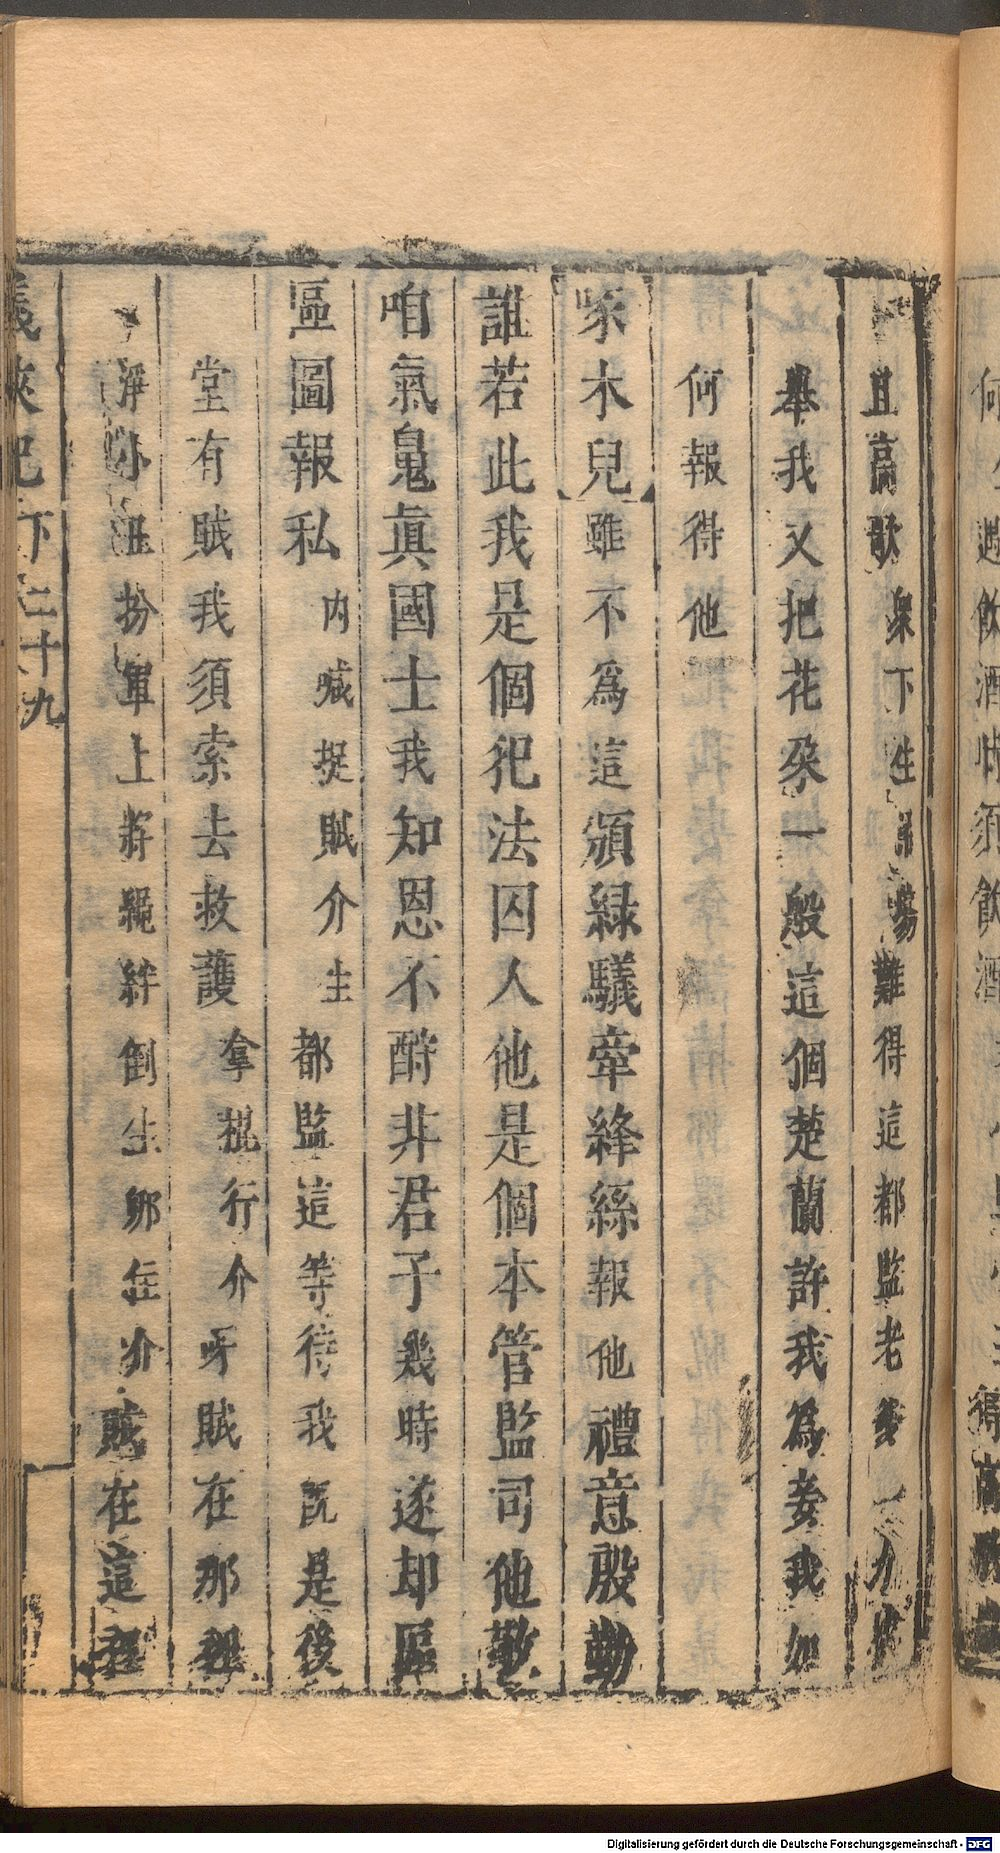 且高歌衆下生難得這都監老爹一力
舉我又把花朶一般這個楚蘭許我為妾我如
何報得他
啄木兒雖不為這頒緑驥牽絳絲報他禮意殷勤
誰若此我是個犯法囚人他是個本管監司他敬
咱氣鬼眞國士我知知恩不酧非君子幾時遂却區
區圖報私内喊捉賊介生都監這等待我既是後
堂有賊我須索去救護拿棍行介呀賊在那裡
淨小丑扮軍上將繩絆倒生綁住介賊在這裡
義俠記下二十九
Digitalisierung gefördert durch die Deutsche Forschungsgemeinschaft - DFG